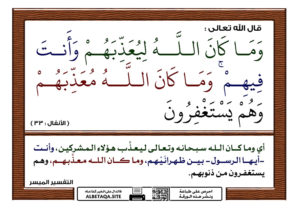 قال الله تعالى :
وَمَا كَانَ اللَّهُ لِيُعَذِّبَهُمْ وَأَنتَ
فِيهِمْ ۚ وَمَا كَانَ اللَّهُ مُعَذِّبَهُمْ
وَهُمْ يَسْتَغْفِرُونَ
( الأنفال : ٣٣ )
أي وما كان الله سبحانه وتعالى ليعذِّب هؤلاء المشركين، وأنت
-أيها الرسول- بين ظهرانَيْهم، وما كان الله معذِّبهم، وهم
يستغفرون من ذنوبهم.
التفسير الميسر
احرص على طباعة
ونشر هذه الورقة
ALBETAQA.SITE